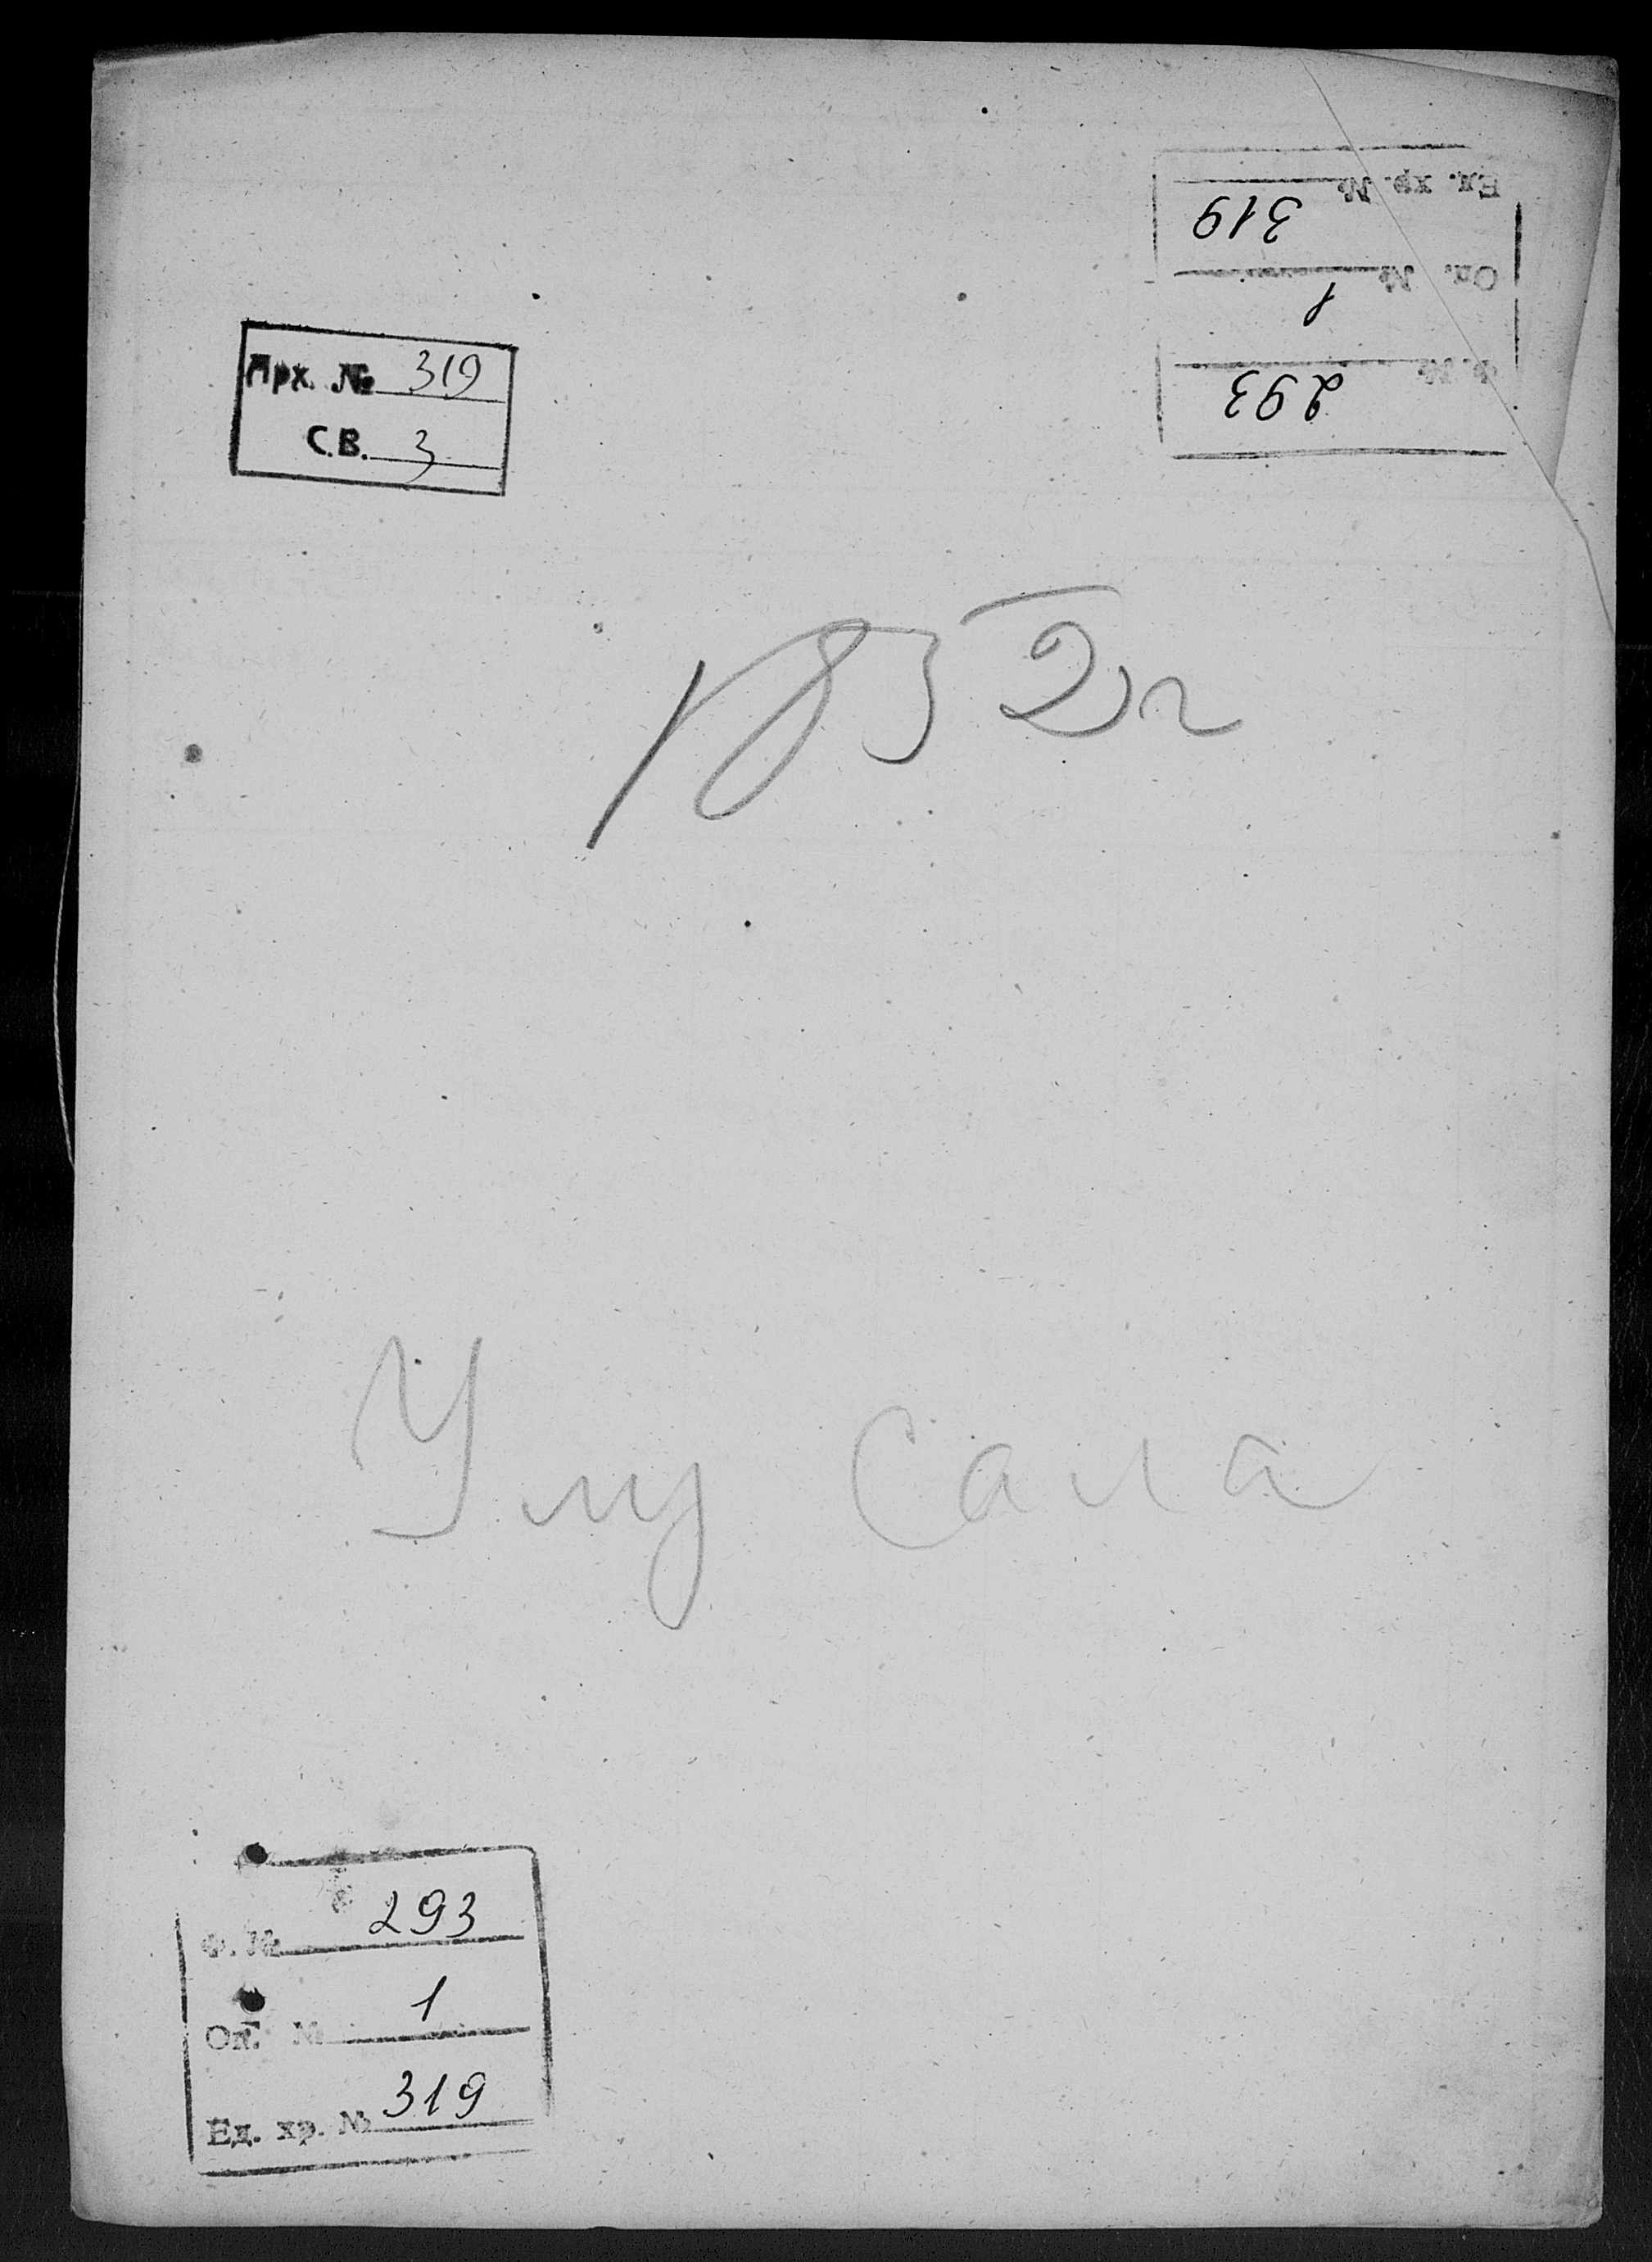 Ед. хр. № 319
Оп. № 1
Ф. № 293
Арх. № 319
С.В. 3
1852 г
Улу Сала
Ф. № 293
Оп. № 1
Ед. хр. № 319